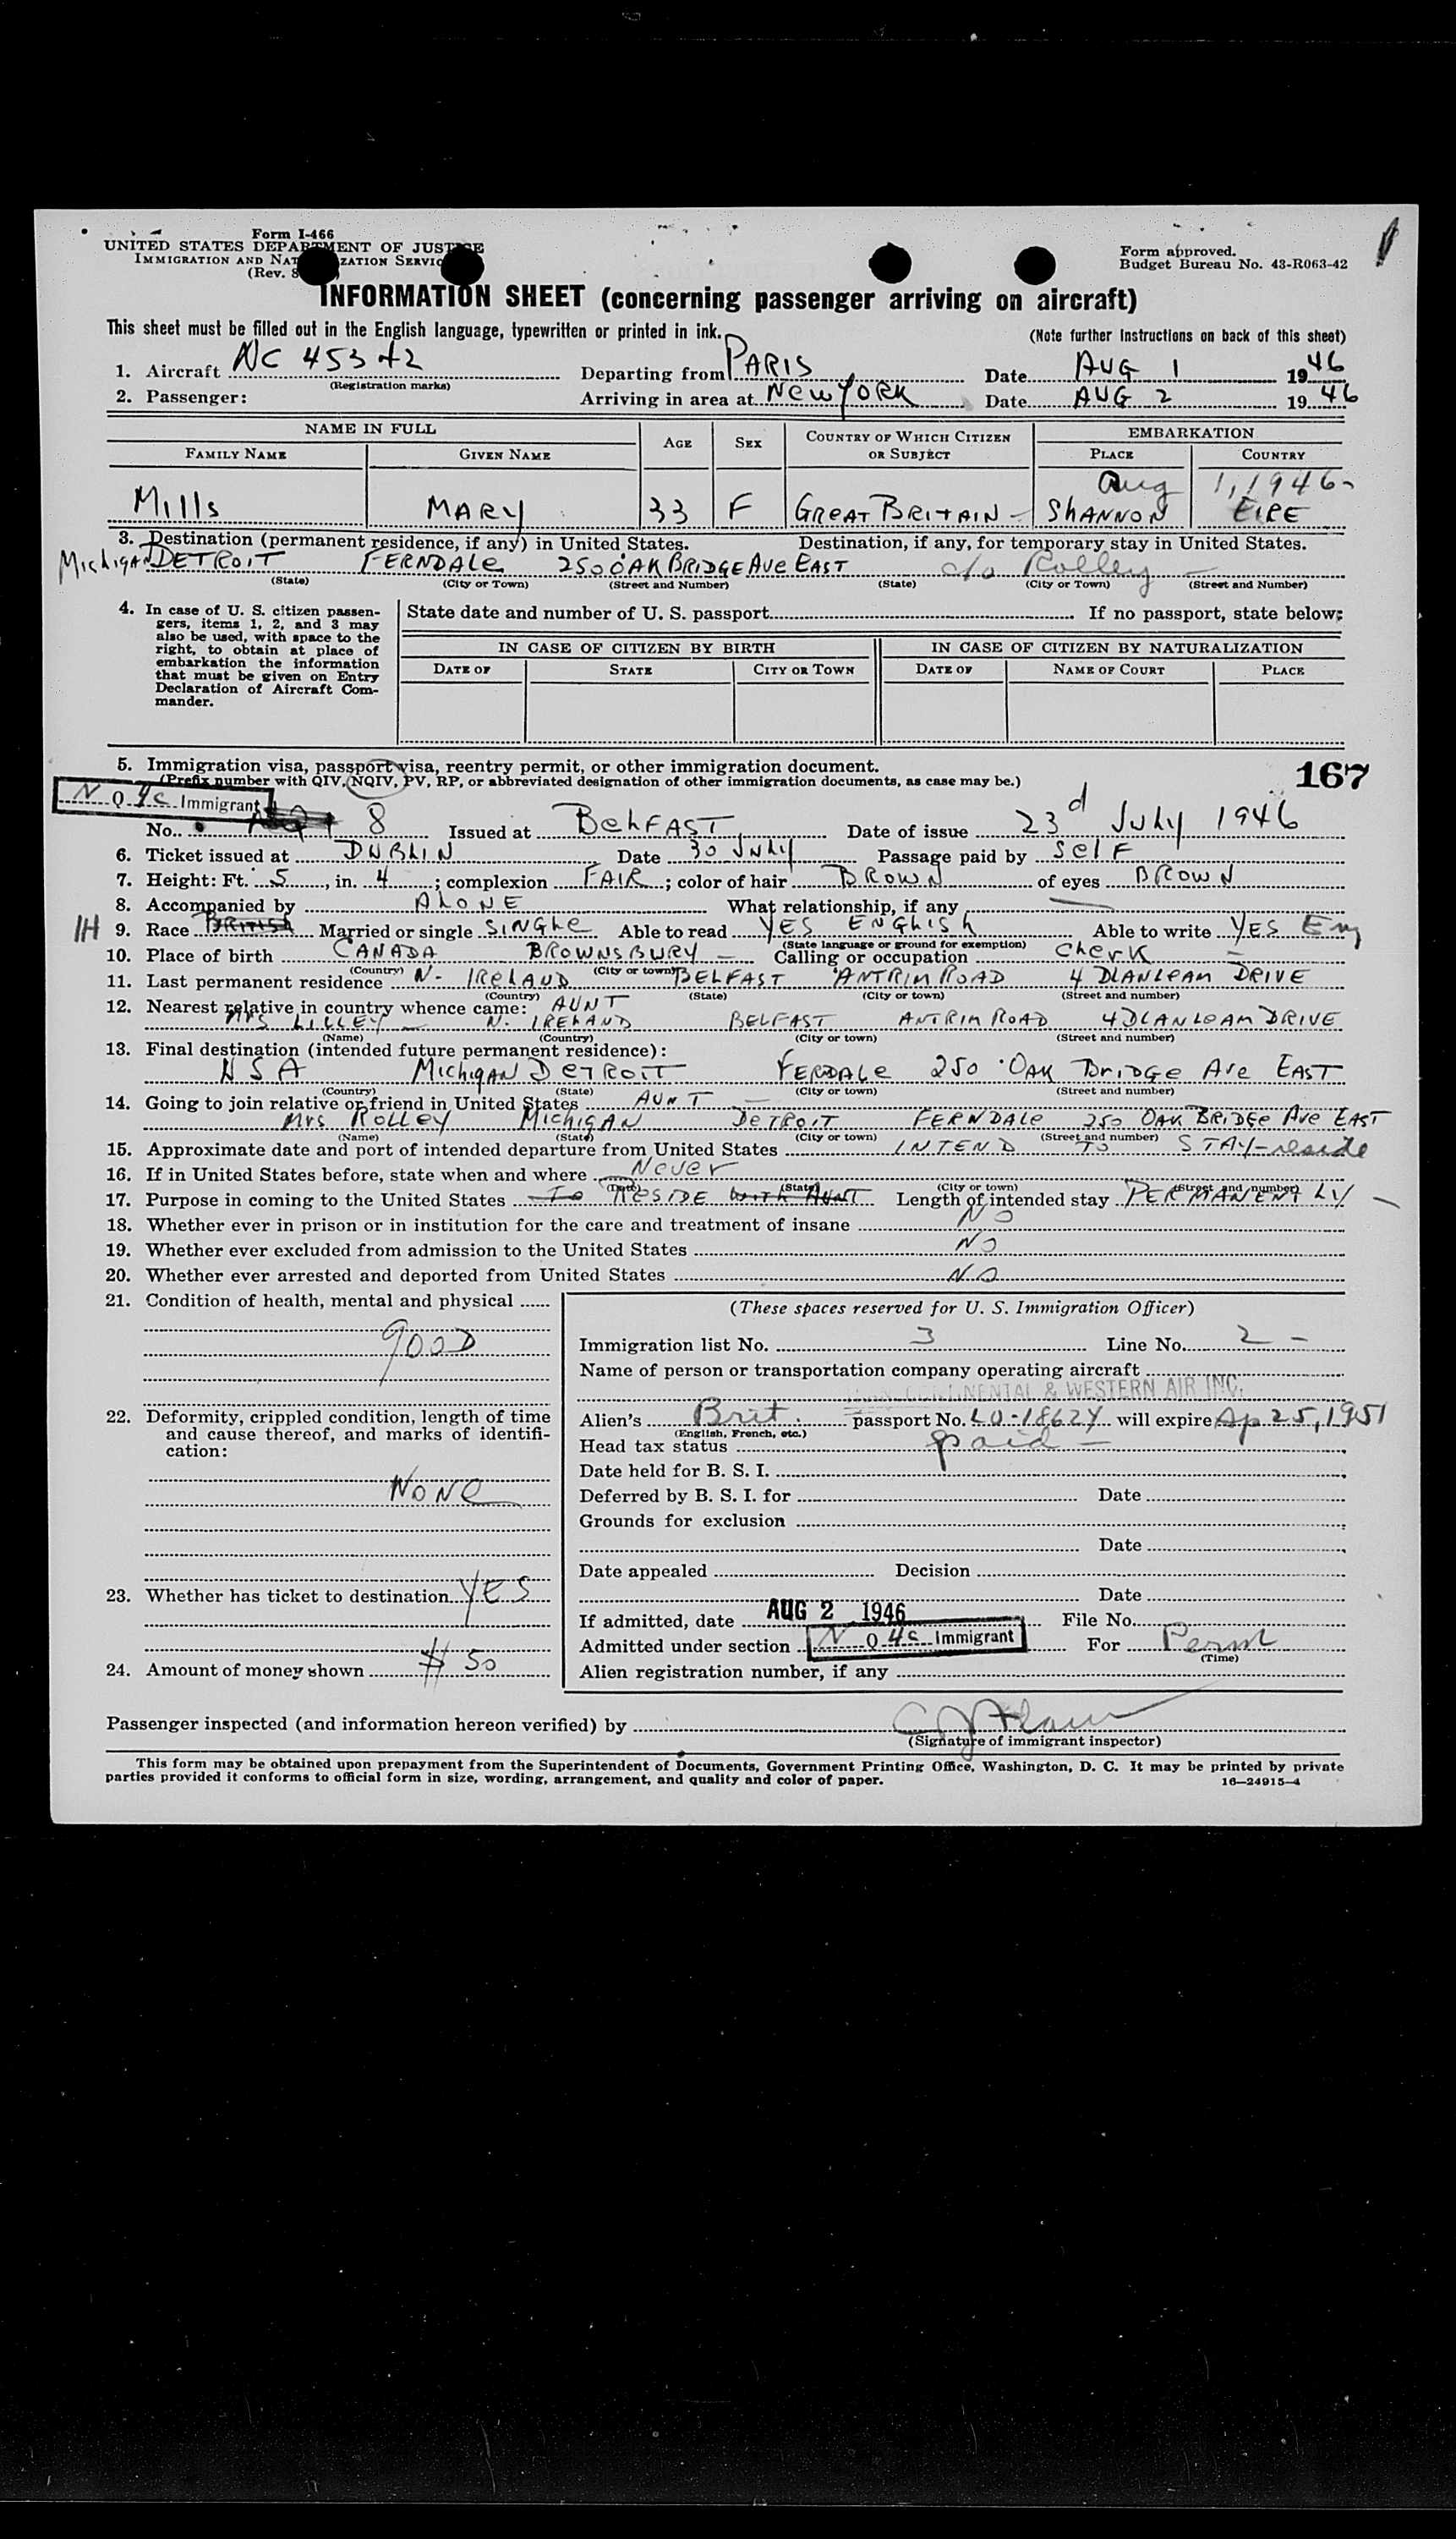 Form I-466
UNITED STATES DEPARTMENT OF JUSTICE
IMMIGRATION AND NATURALIZATION SERVICE
(Rev. 8
Form approved.
Budget Bureau No. 43-R063-42
INFORMATION SHEET (concerning passenger arriving on aircraft)
This sheet must be filled out in the English language, typewritten or printed in ink.
(Note further instructions on back of this sheet)
1. Aircraft NC 45342 Departing from PARIS Date AUG 1 1946
(Registration marks)
2. Passenger: Arriving in area at New YORK Date AUG 2 1946
NAME IN FULL AGE SEX COUNTRY OF WHICH CITIZEN OR SUBJECT EMBARKATION
FAMILY NAME GIVEN NAME PLACE COUNTRY
Aug 1, 1946
Mills MARY 33 F GREAT BRITAIN - SHANNON EIRE
3. Destination (permanent residence, if any) in United States. Destination, if any, for temporary stay in United States.
Michigan DETROIT FERNDALE 250 OAKBRIDGE AVE EAST c/o Rolley
(State) (City or Town) (Street and Number) (State) (City or Town) (Street and Number)
4. In case of U. S. citizen passengers, items 1, 2, and 3 may also be used, with space to the right, to obtain at place of embarkation the information that must be given on Entry Declaration of Aircraft Commander.
State date and number of U. S. passport If no passport, state below:
IN CASE OF CITIZEN BY BIRTH IN CASE OF CITIZEN BY NATURALIZATION
DATE OF STATE CITY OR TOWN DATE OF NAME OF COURT PLACE
5. Immigration visa, passport visa, reentry permit, or other immigration document.
(Prefix number with QIV, NQIV, PV, RP, or abbreviated designation of other immigration documents, as case may be.)
167
N Q 4c Immigrant
No. 8 Issued at BELFAST Date of issue 23d July 1946
6. Ticket issued at DUBLIN Date 30 JULY Passage paid by Self
7. Height: Ft. 5, in. 4; complexion FAIR; color of hair BROWN of eyes BROWN
8. Accompanied by ALONE What relationship, if any
IH 9. Race BRITISH Married or single SINGLE Able to read YES ENGLISH Able to write YES Eng
(State language or ground for exemption)
10. Place of birth CANADA BROWNSBURY Calling or occupation Clerk
(Country) (City or town)
11. Last permanent residence N. IRELAND BELFAST ANTRIM ROAD 4 DLANLEAM DRIVE
(Country) (State) (City or town) (Street and number)
12. Nearest relative in country whence came: AUNT
MRS LILLEY N. IRELAND BELFAST ANTRIM ROAD 4 DLANLEAM DRIVE
(Name) (Country) (City or town) (Street and number)
13. Final destination (intended future permanent residence):
USA MICHIGAN DETROIT FERDALE 250 OAK BRIDGE AVE EAST
(Country) (State) (City or town) (Street and number)
14. Going to join relative or friend in United States AUNT
MRS ROLLEY MICHIGAN DETROIT FERNDALE 250 OAK BRIDGE AVE EAST
(Name) (State) (City or town) (Street and number)
15. Approximate date and port of intended departure from United States INTEND TO STAY-reside
16. If in United States before, state when and where Never
(Date) (State) (City or town) (Street and number)
17. Purpose in coming to the United States To RESIDE WITH AUNT Length of intended stay PERMANENTLY
18. Whether ever in prison or in institution for the care and treatment of insane NO
19. Whether ever excluded from admission to the United States NO
20. Whether ever arrested and deported from United States NO
21. Condition of health, mental and physical
GOOD
22. Deformity, crippled condition, length of time and cause thereof, and marks of identification:
NONE
23. Whether has ticket to destination YES
24. Amount of money shown $ 50
(These spaces reserved for U. S. Immigration Officer)
Immigration list No. 3 Line No. 2
Name of person or transportation company operating aircraft
CONTINENTAL & WESTERN AIR INC.
Alien's Brit. passport No. LO-18624 will expire Ap 25, 1951
(English, French, etc.)
Head tax status paid
Date held for B. S. I.
Deferred by B. S. I. for Date
Grounds for exclusion
Date
Date appealed Decision
Date
If admitted, date AUG 2 1946 File No.
Admitted under section N Q 4c Immigrant For Perm
(Time)
Alien registration number, if any
Passenger inspected (and information hereon verified) by
(Signature of immigrant inspector)
This form may be obtained upon prepayment from the Superintendent of Documents, Government Printing Office, Washington, D. C. It may be printed by private
parties provided it conforms to official form in size, wording, arrangement, and quality and color of paper.
16—24915-4